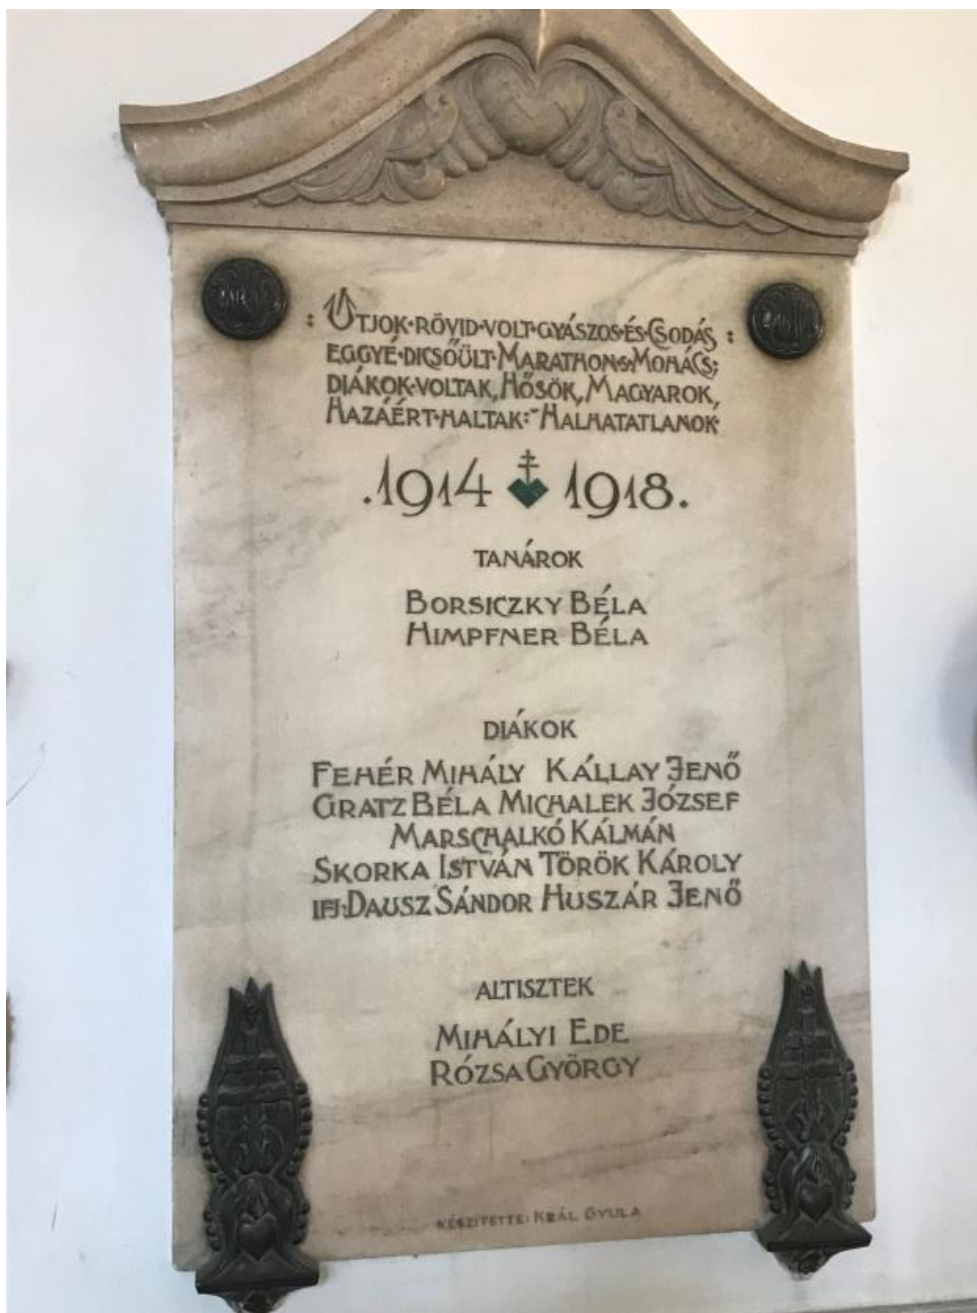 : ÚTJOK·RÖVID·VOLT·GYÁSZOS·ÉS·CSODÁS :
EGGYÉ·DICSŐÜLT·MARATHON·S·MOHÁCS;
DIÁKOK·VOLTAK, HŐSÖK, MAGYAROK,
HAZÁÉRT·HALTAK:-HALHATATLANOK·
.1914 1918.
TANÁROK
BORSICZKY BÉLA
HIMPFNER BÉLA
DIÁKOK
FEHÉR MIHÁLY KÁLLAY JENŐ
GRATZ BÉLA MICHALEK JÓZSEF
MARSCHALKÓ KÁLMÁN
SKORKA ISTVÁN TÖRÖK KÁROLY
IFJ·DAUSZ SÁNDOR HUSZÁR JENŐ
ALTISZTEK
MIHÁLYI EDE
RÓZSA GYÖRGY
KÉSZÍTETTE: KRÁL GYULA